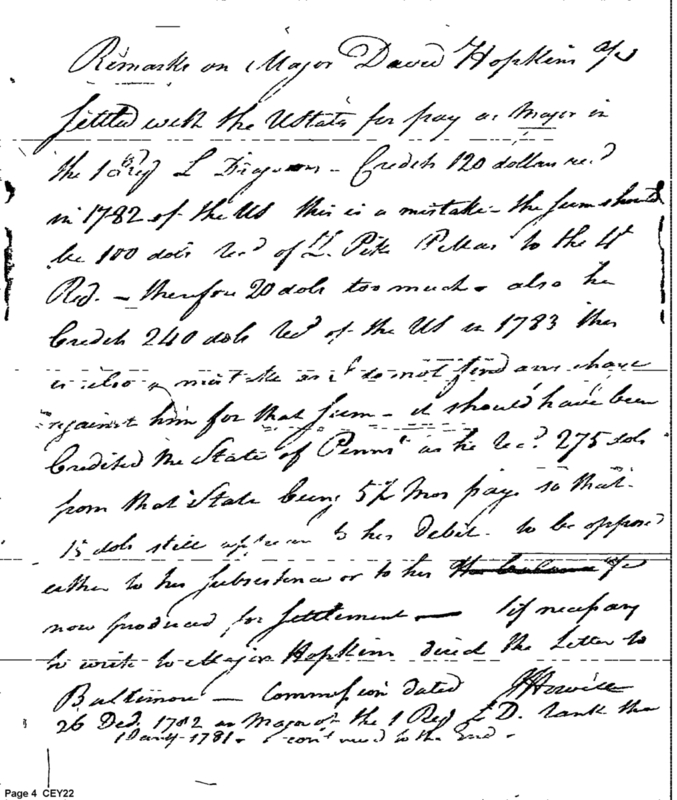 Remarks on Major David Hopkins a/c
Settled with the UStates for pay as Major in
the 1 Reg L Dragoons - Credits 120 dollars recd
in 1782 of the US this is a mistake - the sum should
be 100 dols recd of Lt. Pike to the 4th
Reg. - therefore 20 dols too much - also he
Credits 240 dols recd of the US in 1783 this
is also a mistake as I do not find any charge
against him for that sum - it should have been
Credited the State of Pennsa as he recd 275 dols
from that State being 5½ Mos pay so that
15 dols still appear to his Debit. to be opposed
either to his subsistence or to his a/c
now produced for settlement — if necessary
to write to Major Hopkins direct the Letter to
Baltimore — Commission dated J Howell
26 Decr. 1782 as Major of the 1 Reg L D. rank the
1 Jany 1781 & continued to the End.
Page 4 CEY22